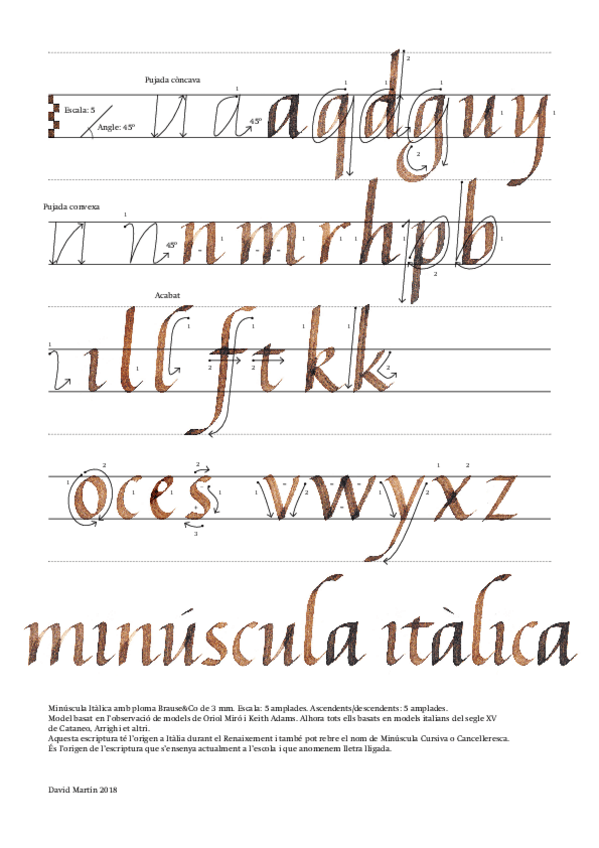 Pujada còncava
Escala: 5
Angle: 45º
45º
a q d g u y
Pujada convexa
45º
n m r h p b
Acabat
ı l l f t k k
o c e s v w y x z
minúscula itàlica
Minúscula Itàlica amb ploma Brause&Co de 3 mm. Escala: 5 amplades. Ascendents/descendents: 5 amplades.
Model basat en l'observació de models de Oriol Miró i Keith Adams. Alhora tots ells basats en models italians del segle XV
de Cataneo, Arrighi et altri.
Aquesta escriptura té l'origen a Itàlia durant el Renaixement i també pot rebre el nom de Minúscula Cursiva o Cancelleresca.
És l'origen de l'escriptura que s'ensenya actualment a l'escola i que anomenem lletra lligada.
David Martín 2018